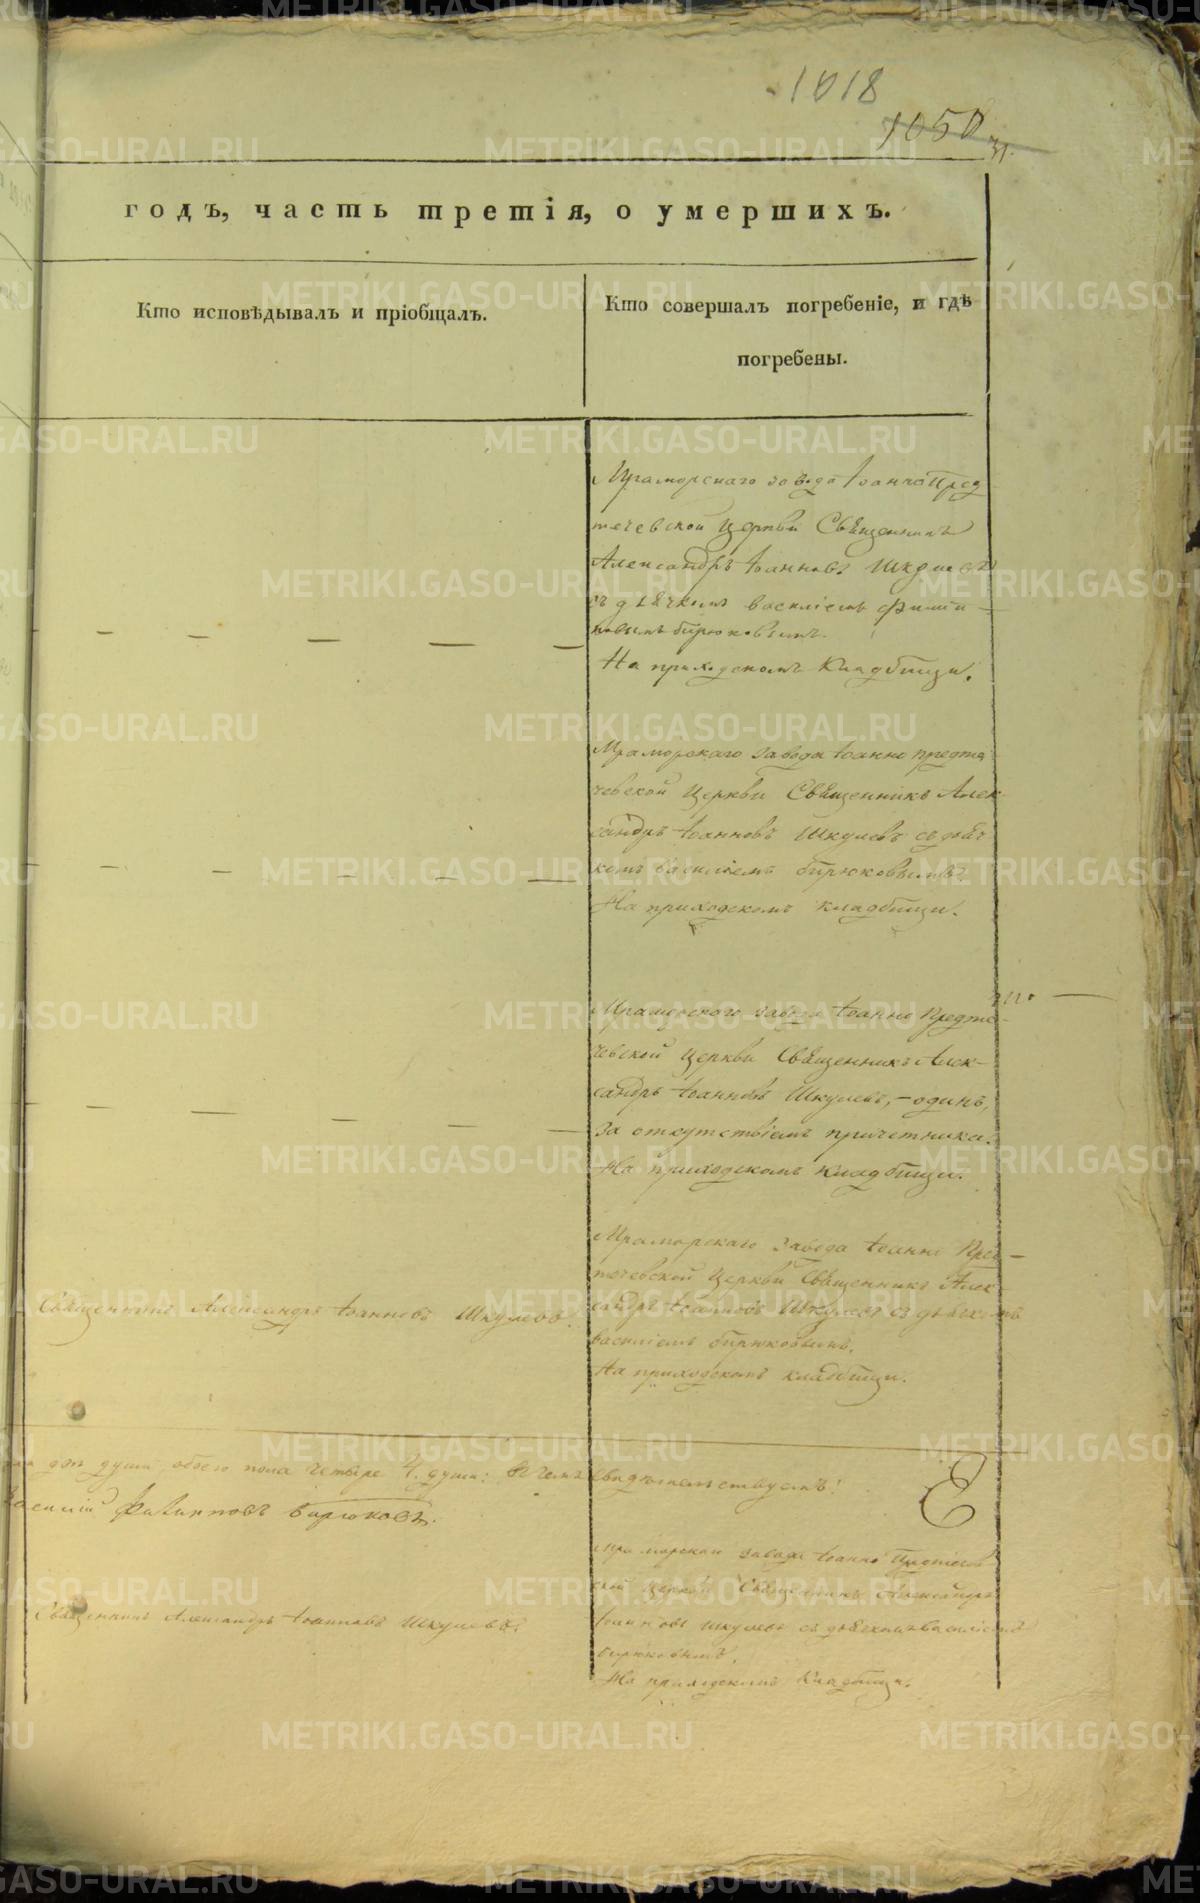 1018
1050
31.
годъ, часть третія, о умершихъ.
Кто исповѣдывалъ и пріобщалъ.
Кто совершалъ погребеніе, и гдѣ
погребены.
Мраморскаго завода Іоанно Пред
течевской церкви Священникъ
Александръ Іоанновъ Шкулевъ
съ дьячкомъ Василіемъ Филип-
повымъ Бирюковымъ.
На приходскомъ Кладбищи.
Мраморскаго завода Іоанно предте
чевской Церкви Священникъ Алек
сандръ Іоанновъ Шкулевъ съ дьяч
комъ Василіемъ Бирюковымъ.
На приходскомъ кладбищи.
Мраморскаго завода Іоанно Предте-
чевской церкви Священникъ Алек-
сандръ Іоанновъ Шкулевъ, - одинъ,
за отсутствіемъ причетника.
На приходскомъ кладбищи.
Священникъ Александръ Іоанновъ Шкулевъ.
Мраморскаго завода Іоанно Пред-
течевской Церкви Священникъ Алек-
сандръ Іоанновъ Шкулевъ съ дьячкомъ
Василіемъ Бирюковымъ.
На приходскомъ кладбищи.
души обоего пола четыре 4. души: въ чемъ свидѣтельствуемъ:
Василій Филипповъ Бирюковъ.
Священникъ Александръ Іоанновъ Шкулевъ.
завода Іоанно Предтечев
ской церкви Священникъ Александръ
Іоанновъ Шкулевъ съ дьячкомъ Василіемъ
Бирюковымъ.
На приходскомъ Кладбищи.
METRIKI.GASO-URAL.RU